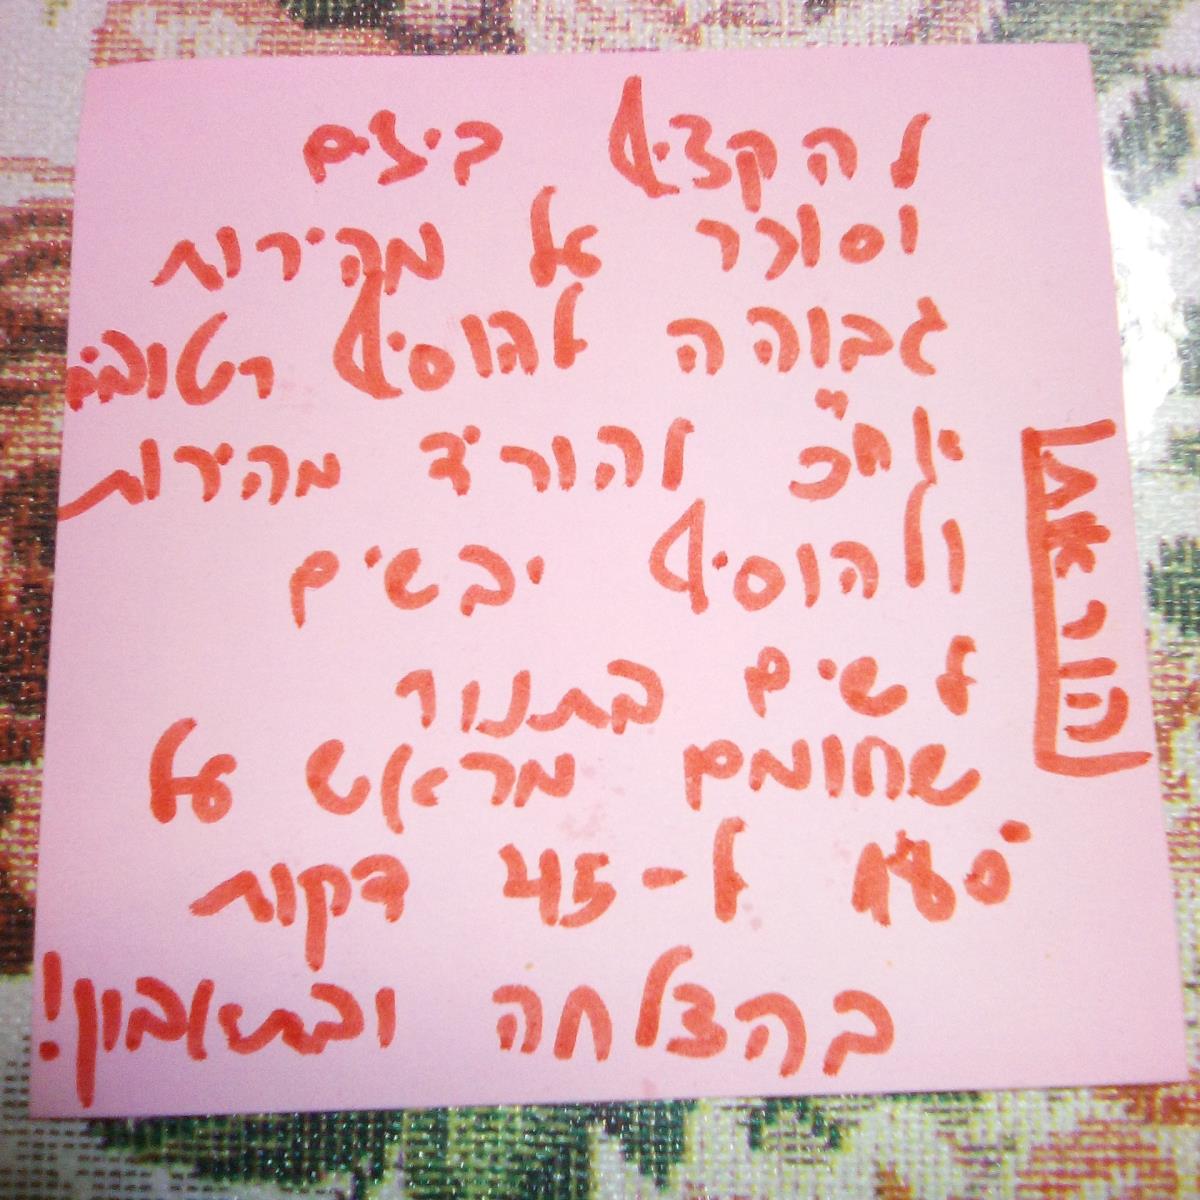 להקציף ביצים
וסוכר על מהירות
גבוהה להוסיף רטובים
אח"כ להוריד מהירות
ולהוסיף יבשים
לשים בתנור
שחומם מראש על
180° ל-45 דקות
בהצלחה ובתיאבון!
הוראות